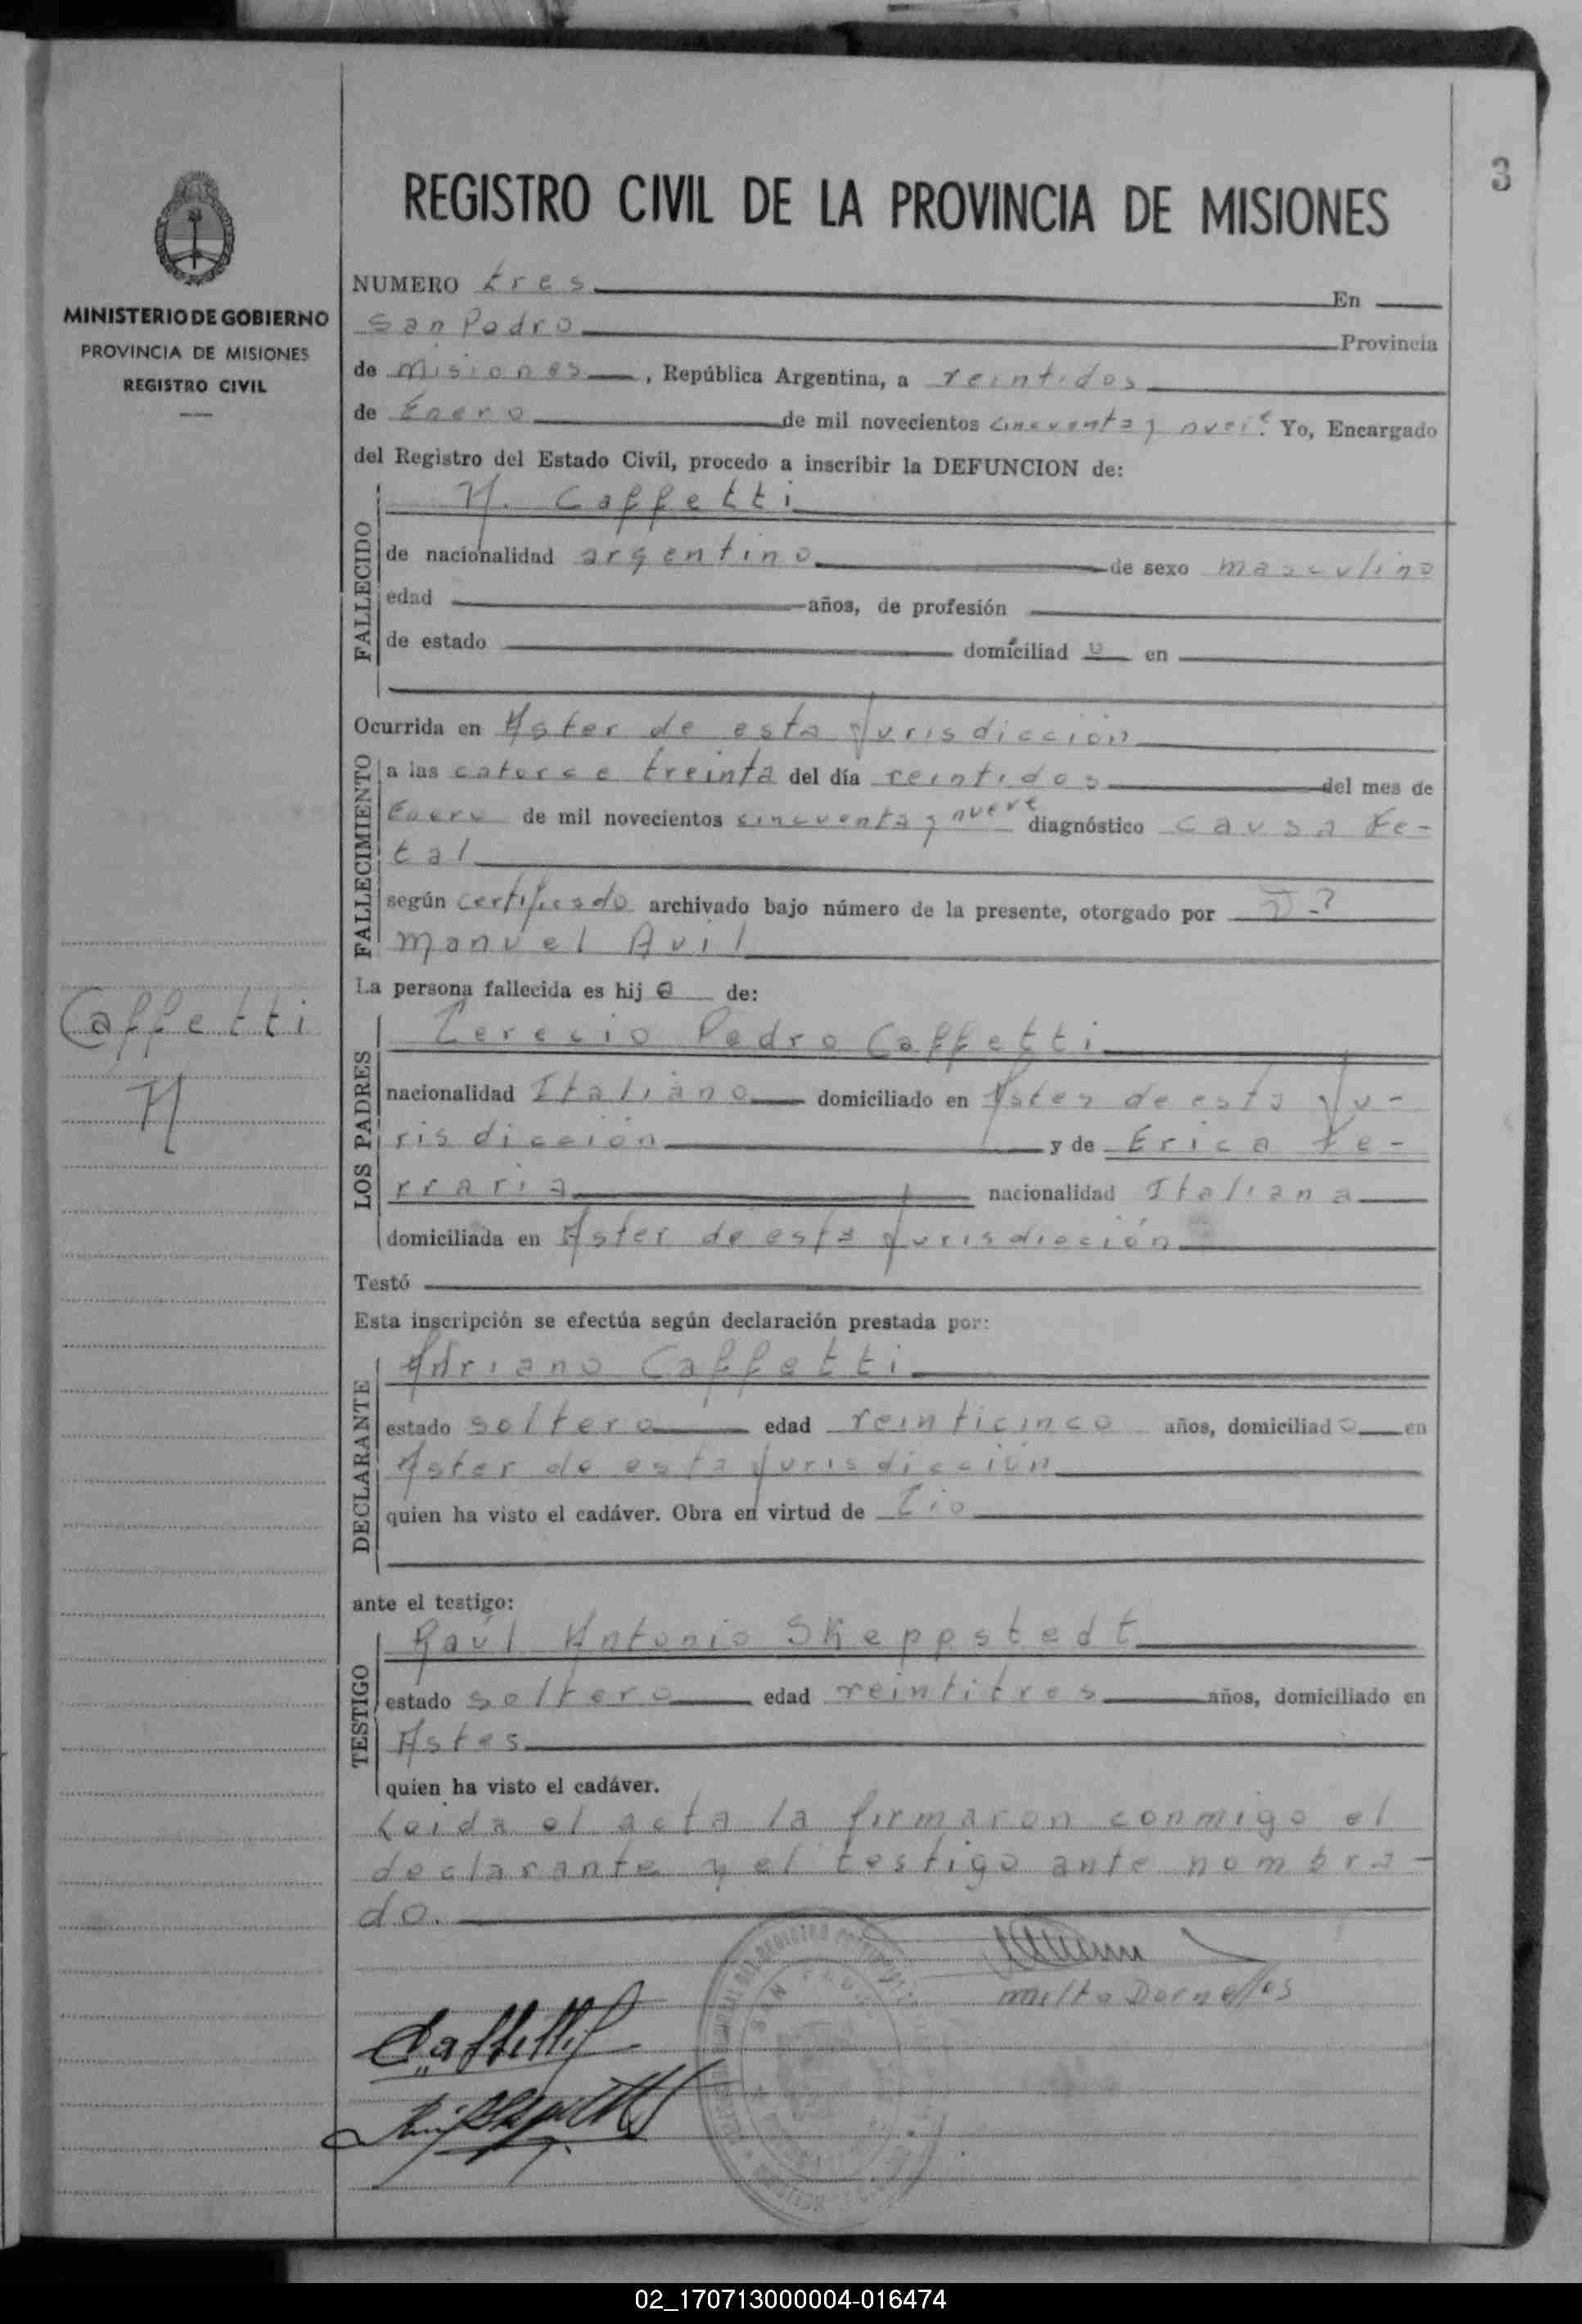 3
REGISTRO CIVIL DE LA PROVINCIA DE MISIONES
MINISTERIO DE GOBIERNO
PROVINCIA DE MISIONES
REGISTRO CIVIL
NUMERO tres En
San Pedro Provincia
de Misiones, República Argentina, a veintidos
de Enero de mil novecientos cincuenta y nueve Yo, Encargado
del Registro del Estado Civil, procedo a inscribir la DEFUNCION de:
N. Caffetti
FALLECIDO
de nacionalidad argentino de sexo masculino
edad años, de profesión
de estado domiciliad o en
Ocurrida en Aster de esta Jurisdicción
FALLECIMIENTO
a las catorce treinta del día veintidos del mes de
Enero de mil novecientos cincuenta y nueve diagnóstico Causa Fe-
tal
según certificado archivado bajo número de la presente, otorgado por
Manuel Avil
La persona fallecida es hij o de:
Caffetti
N
LOS PADRES
Terecio Pedro Caffetti
nacionalidad Italiano domiciliado en Aster de esta Ju-
risdicción y de Erica Fe-
rraria nacionalidad Italiana
domiciliada en Aster de esta Jurisdicción
Testó
Esta inscripción se efectúa según declaración prestada por:
DECLARANTE
Adriano Caffetti
estado soltero edad veinticinco años, domiciliado en
Aster de esta Jurisdicción
quien ha visto el cadáver. Obra en virtud de Tio
ante el testigo:
TESTIGO
Raúl Antonio Skeppstedt
estado soltero edad veintitres años, domiciliado en
Astes
quien ha visto el cadáver.
Leida el acta la firmaron conmigo el
declarante y el testigo ante nombra-
do.
Milto Dornelles
Caffetti
02_170713000004-016474